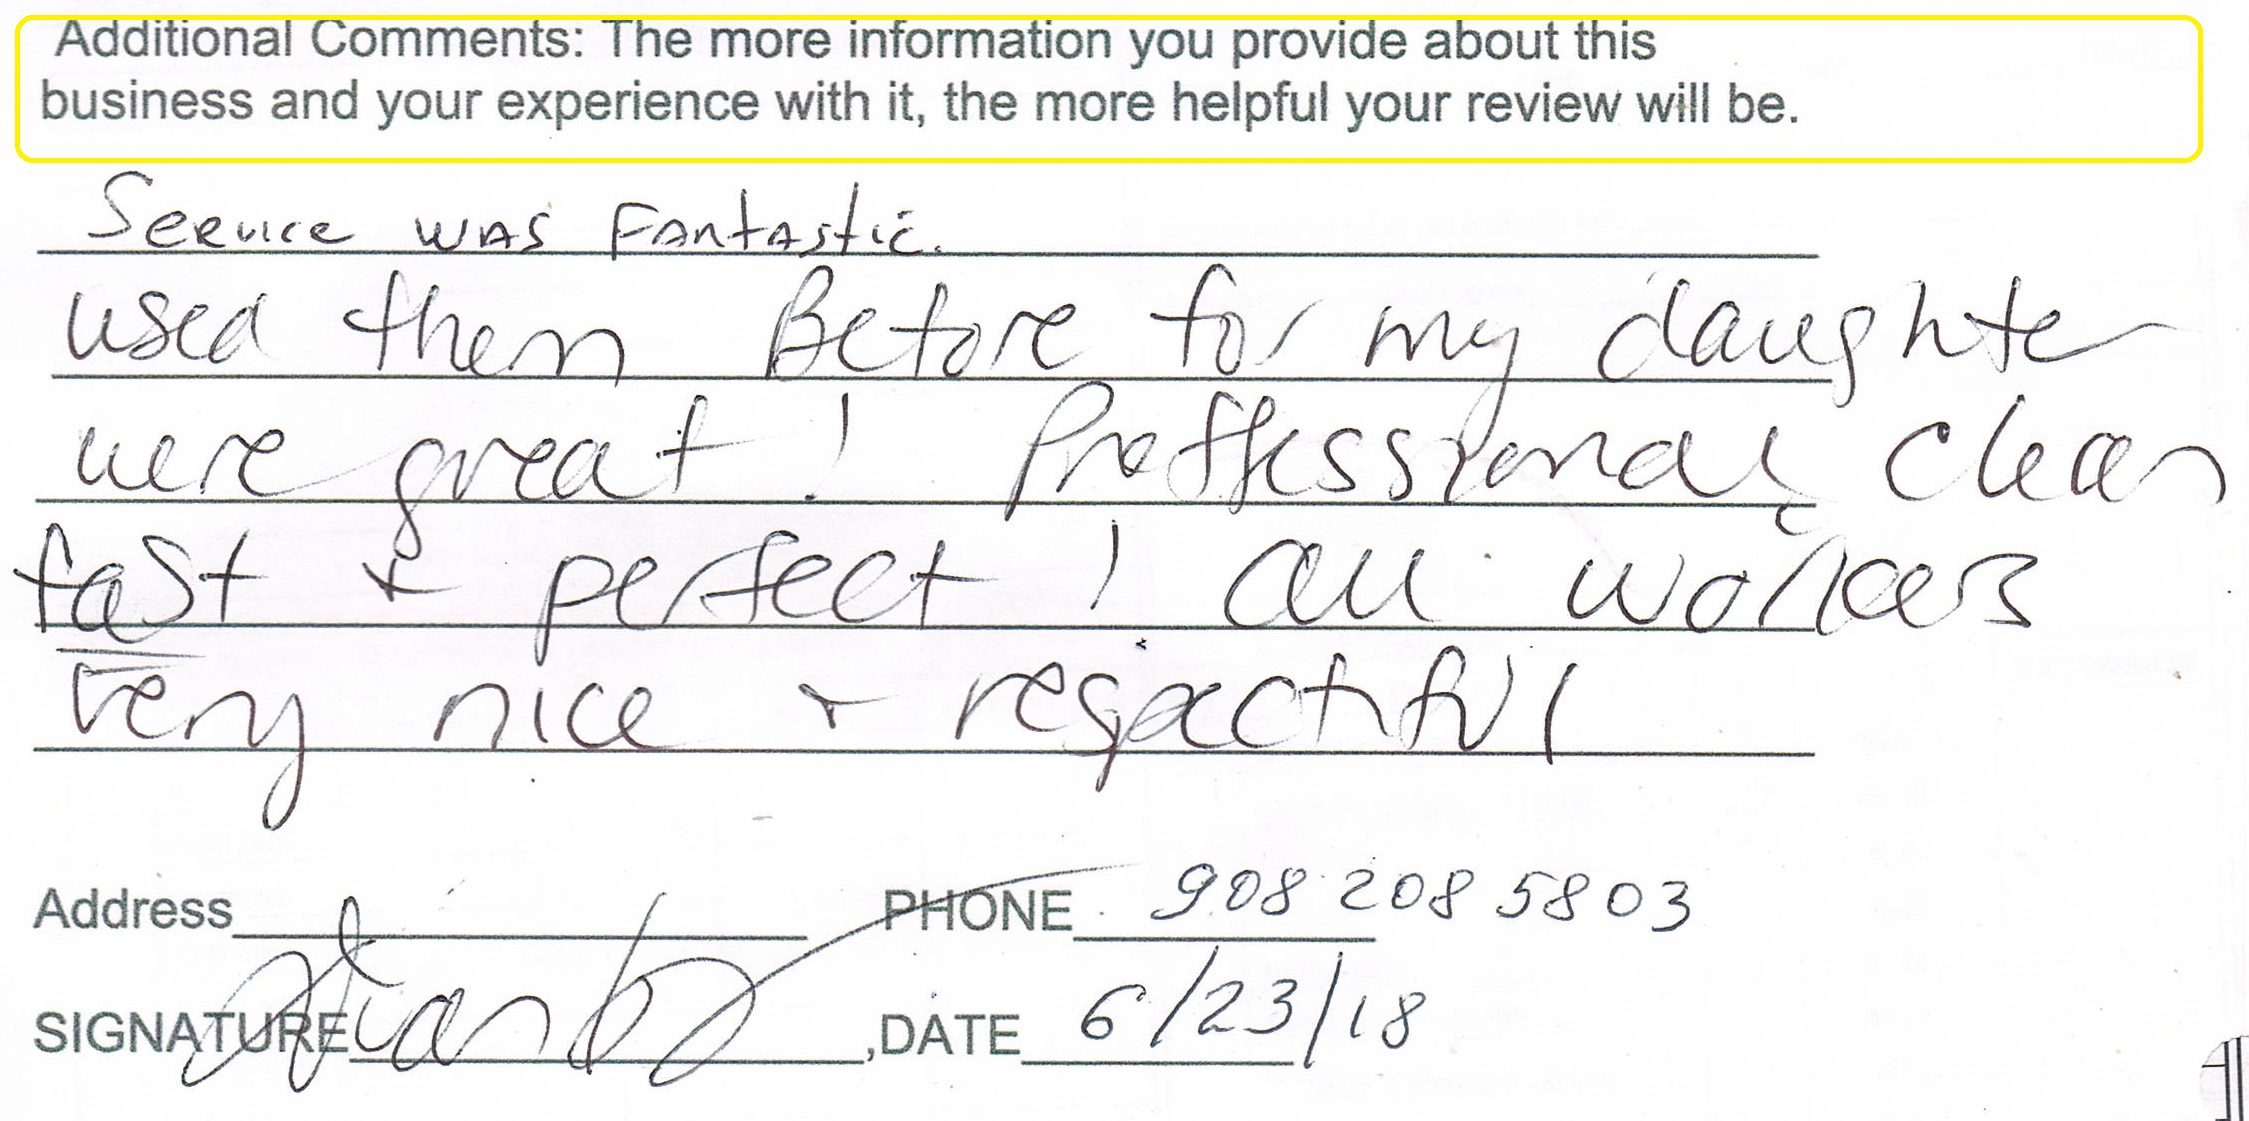 Additional Comments: The more information you provide about this
business and your experience with it, the more helpful your review will be.
Service was Fantastic.
used them Before for my daughter
were great! Proffessional, clean
fast + perfect! all workers
very nice + respectful
Address PHONE 908 208 5803
SIGNATURE ,DATE 6/23/18